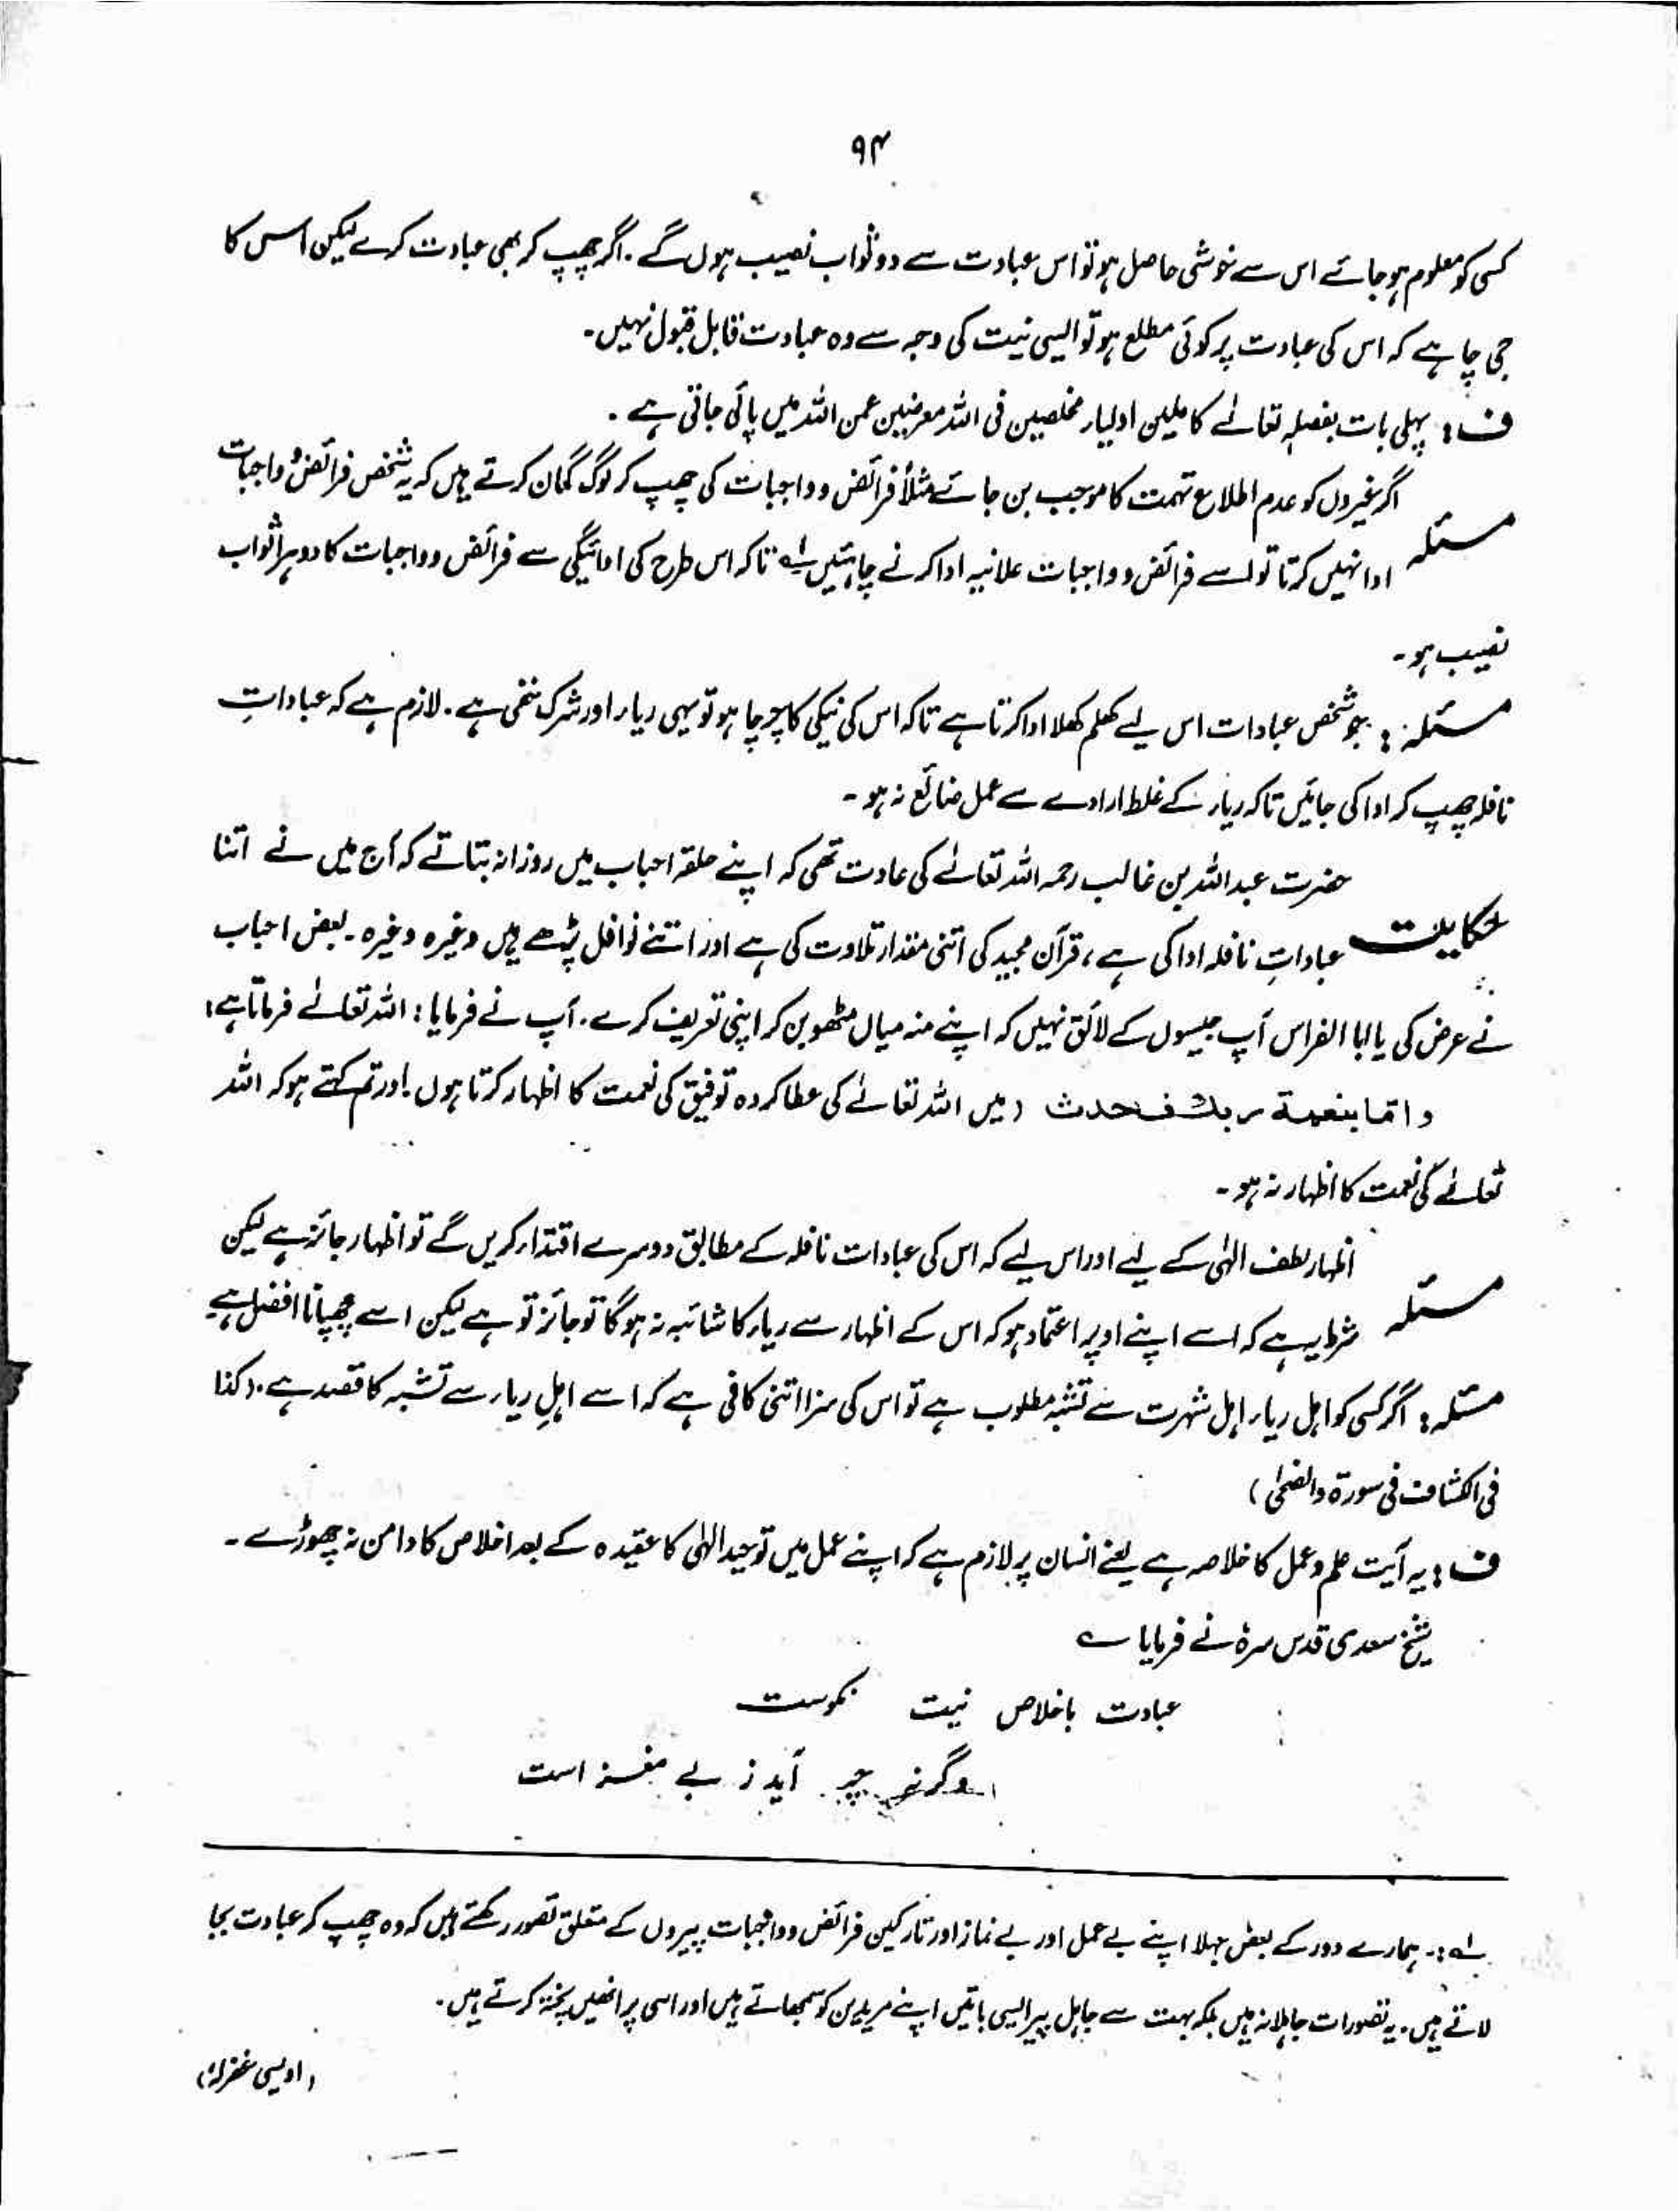 ۹۴
کسی کو معلوم ہو جائے اس سے خوشی حاصل ہو تو اس عبادت سے دو ثواب نصیب ہوں گے۔ اگر چھپ کر بھی عبادت کرے لیکن اس کا
جی چاہے کہ اس کی عبادت پر کوئی مطلع ہو تو ایسی نیت کی وجہ سے وہ عبادت قابل قبول نہیں۔
ف: پہلی بات بفضلہ تعالےٰ کاملین اولیاء مخلصین فی اللہ معرضین عمن اللہ میں پائی جاتی ہے۔
اگر غیروں کو عدم اطلاع تہمت کا موجب بن جائے مثلاً فرائض و واجبات کی چھپ کر لوگ گمان کرتے ہیں کہ یہ شخص فرائض و واجبات
مسئلہ ادا نہیں کرتا تو اسے فرائض و واجبات علانیہ ادا کرنے چاہئیں لہ تاکہ اس طرح کی ادائیگی سے فرائض و واجبات کا دوہرا ثواب
نصیب ہو۔
مسئلہ: جو شخص عبادات اس لیے کھلم کھلا ادا کرتا ہے تاکہ اس کی نیکی کا چرچا ہو تو یہی ریاء اور شرک خفی ہے۔ لازم ہے کہ عباداتِ
نافلہ چھپ کر ادا کی جائیں تاکہ ریاء کے غلط ارادے سے عمل ضائع نہ ہو۔
حضرت عبداللہ بن غالب رحمہ اللہ تعالےٰ کی عادت تھی کہ اپنے حلقہ احباب میں روزانہ بتاتے کہ آج میں نے اتنا
حکایت عباداتِ نافلہ ادا کی ہے، قرآن مجید کی اتنی مقدار تلاوت کی ہے اور اتنے نوافل پڑھے ہیں وغیرہ وغیرہ۔ بعض احباب
نے عرض کی یا ابا الفراس آپ جیسوں کے لائق نہیں کہ اپنے منہ میاں مٹھو بن کر اپنی تعریف کرے۔ آپ نے فرمایا: اللہ تعالےٰ فرماتا ہے:
واما بنعمۃ ربک فحدث (میں اللہ تعالےٰ کی عطا کردہ توفیق کی نعمت کا اظہار کرتا ہوں اور تم کہتے ہو کہ اللہ
تعالےٰ کی نعمت کا اظہار نہ ہو۔
اظہار لطف الٰہی کے لیے اور اس لیے کہ اس کی عبادات نافلہ کے مطابق دوسرے اقتداء کریں گے تو اظہار جائز ہے لیکن
مسئلہ شرط یہ ہے کہ اسے اپنے اوپر اعتماد ہو کہ اس کے اظہار سے ریاء کا شائبہ نہ ہو گا تو جائز تو ہے لیکن اسے چھپانا افضل ہے۔
مسئلہ: اگر کسی کو اہل ریاء، اہل شہرت سے تشبّہ مطلوب ہے تو اس کی سزا اتنی کافی ہے کہ اسے اہلِ ریاء سے تشبہ کا قصد ہے۔ (کذا
فی الکشاف فی سورۃ والضحیٰ)
ف: یہ آیت علم و عمل کا خلاصہ ہے یعنے انسان پر لازم ہے کہ اپنے عمل میں توحید الٰہی کا عقیدہ کے بعد اخلاص کا دامن نہ چھوڑے۔
شیخ سعدی قدس سرہٗ نے فرمایا ؎
عبادت باخلاص نیت نکوست
وگرنہ چہ آید ز بے مغز است
لہ:۔ ہمارے دور کے بعض جہلا اپنے بے عمل اور بے نماز اور تارکین فرائض و واجبات پیروں کے متعلق تصور رکھتے ہیں کہ وہ چھپ کر عبادت بجا
لاتے ہیں۔ یہ تصورات جاہلانہ ہیں بلکہ بہت سے جاہل پیر ایسی باتیں اپنے مریدین کو سمجھاتے ہیں اور اسی پر انھیں پختہ کرتے ہیں۔
(اویسی غفرلہٗ)